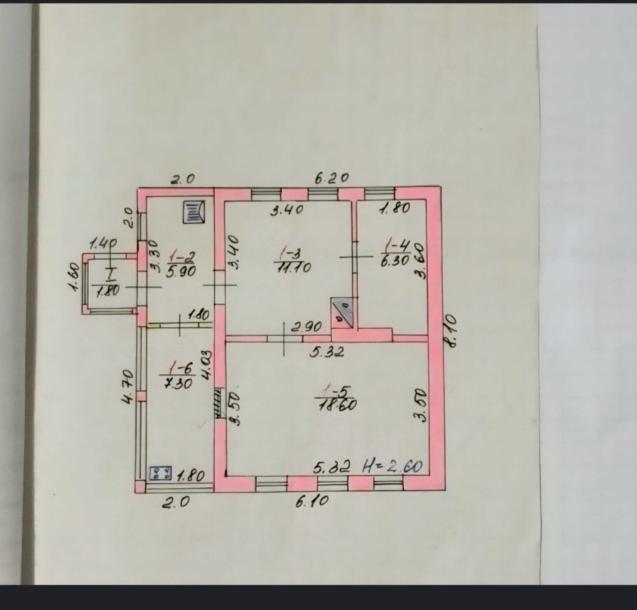 2.0
6.20
3.40
1.80
2.0
1.40
3.30
1-2
5.90
3.40
1-3
11.10
1-4
6.30
3.60
1.60
I
1.80
1.80
2.90
5.32
8.10
4.70
1-6
7.30
4.03
3.50
1-5
18.60
3.50
1.80
5.32 H=2.60
2.0
6.10